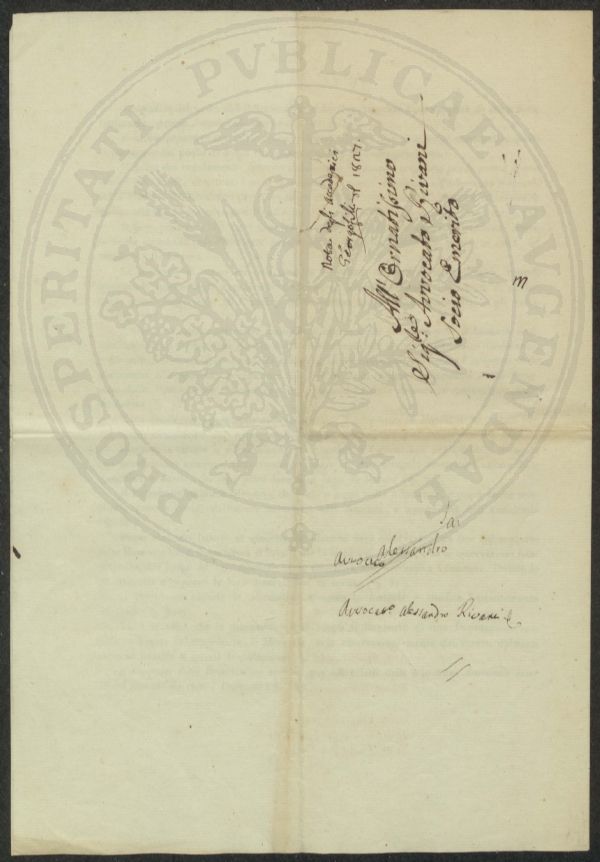 PROSPERITATI PVBLICAE AVGENDAE
Nota degli accademici
Georgofili del 1807.
All' Ornatissimo
Sig:re Avvocato Rivani
Socio Emerito
m
Alessandro
Avvocato Alessandro Rivani